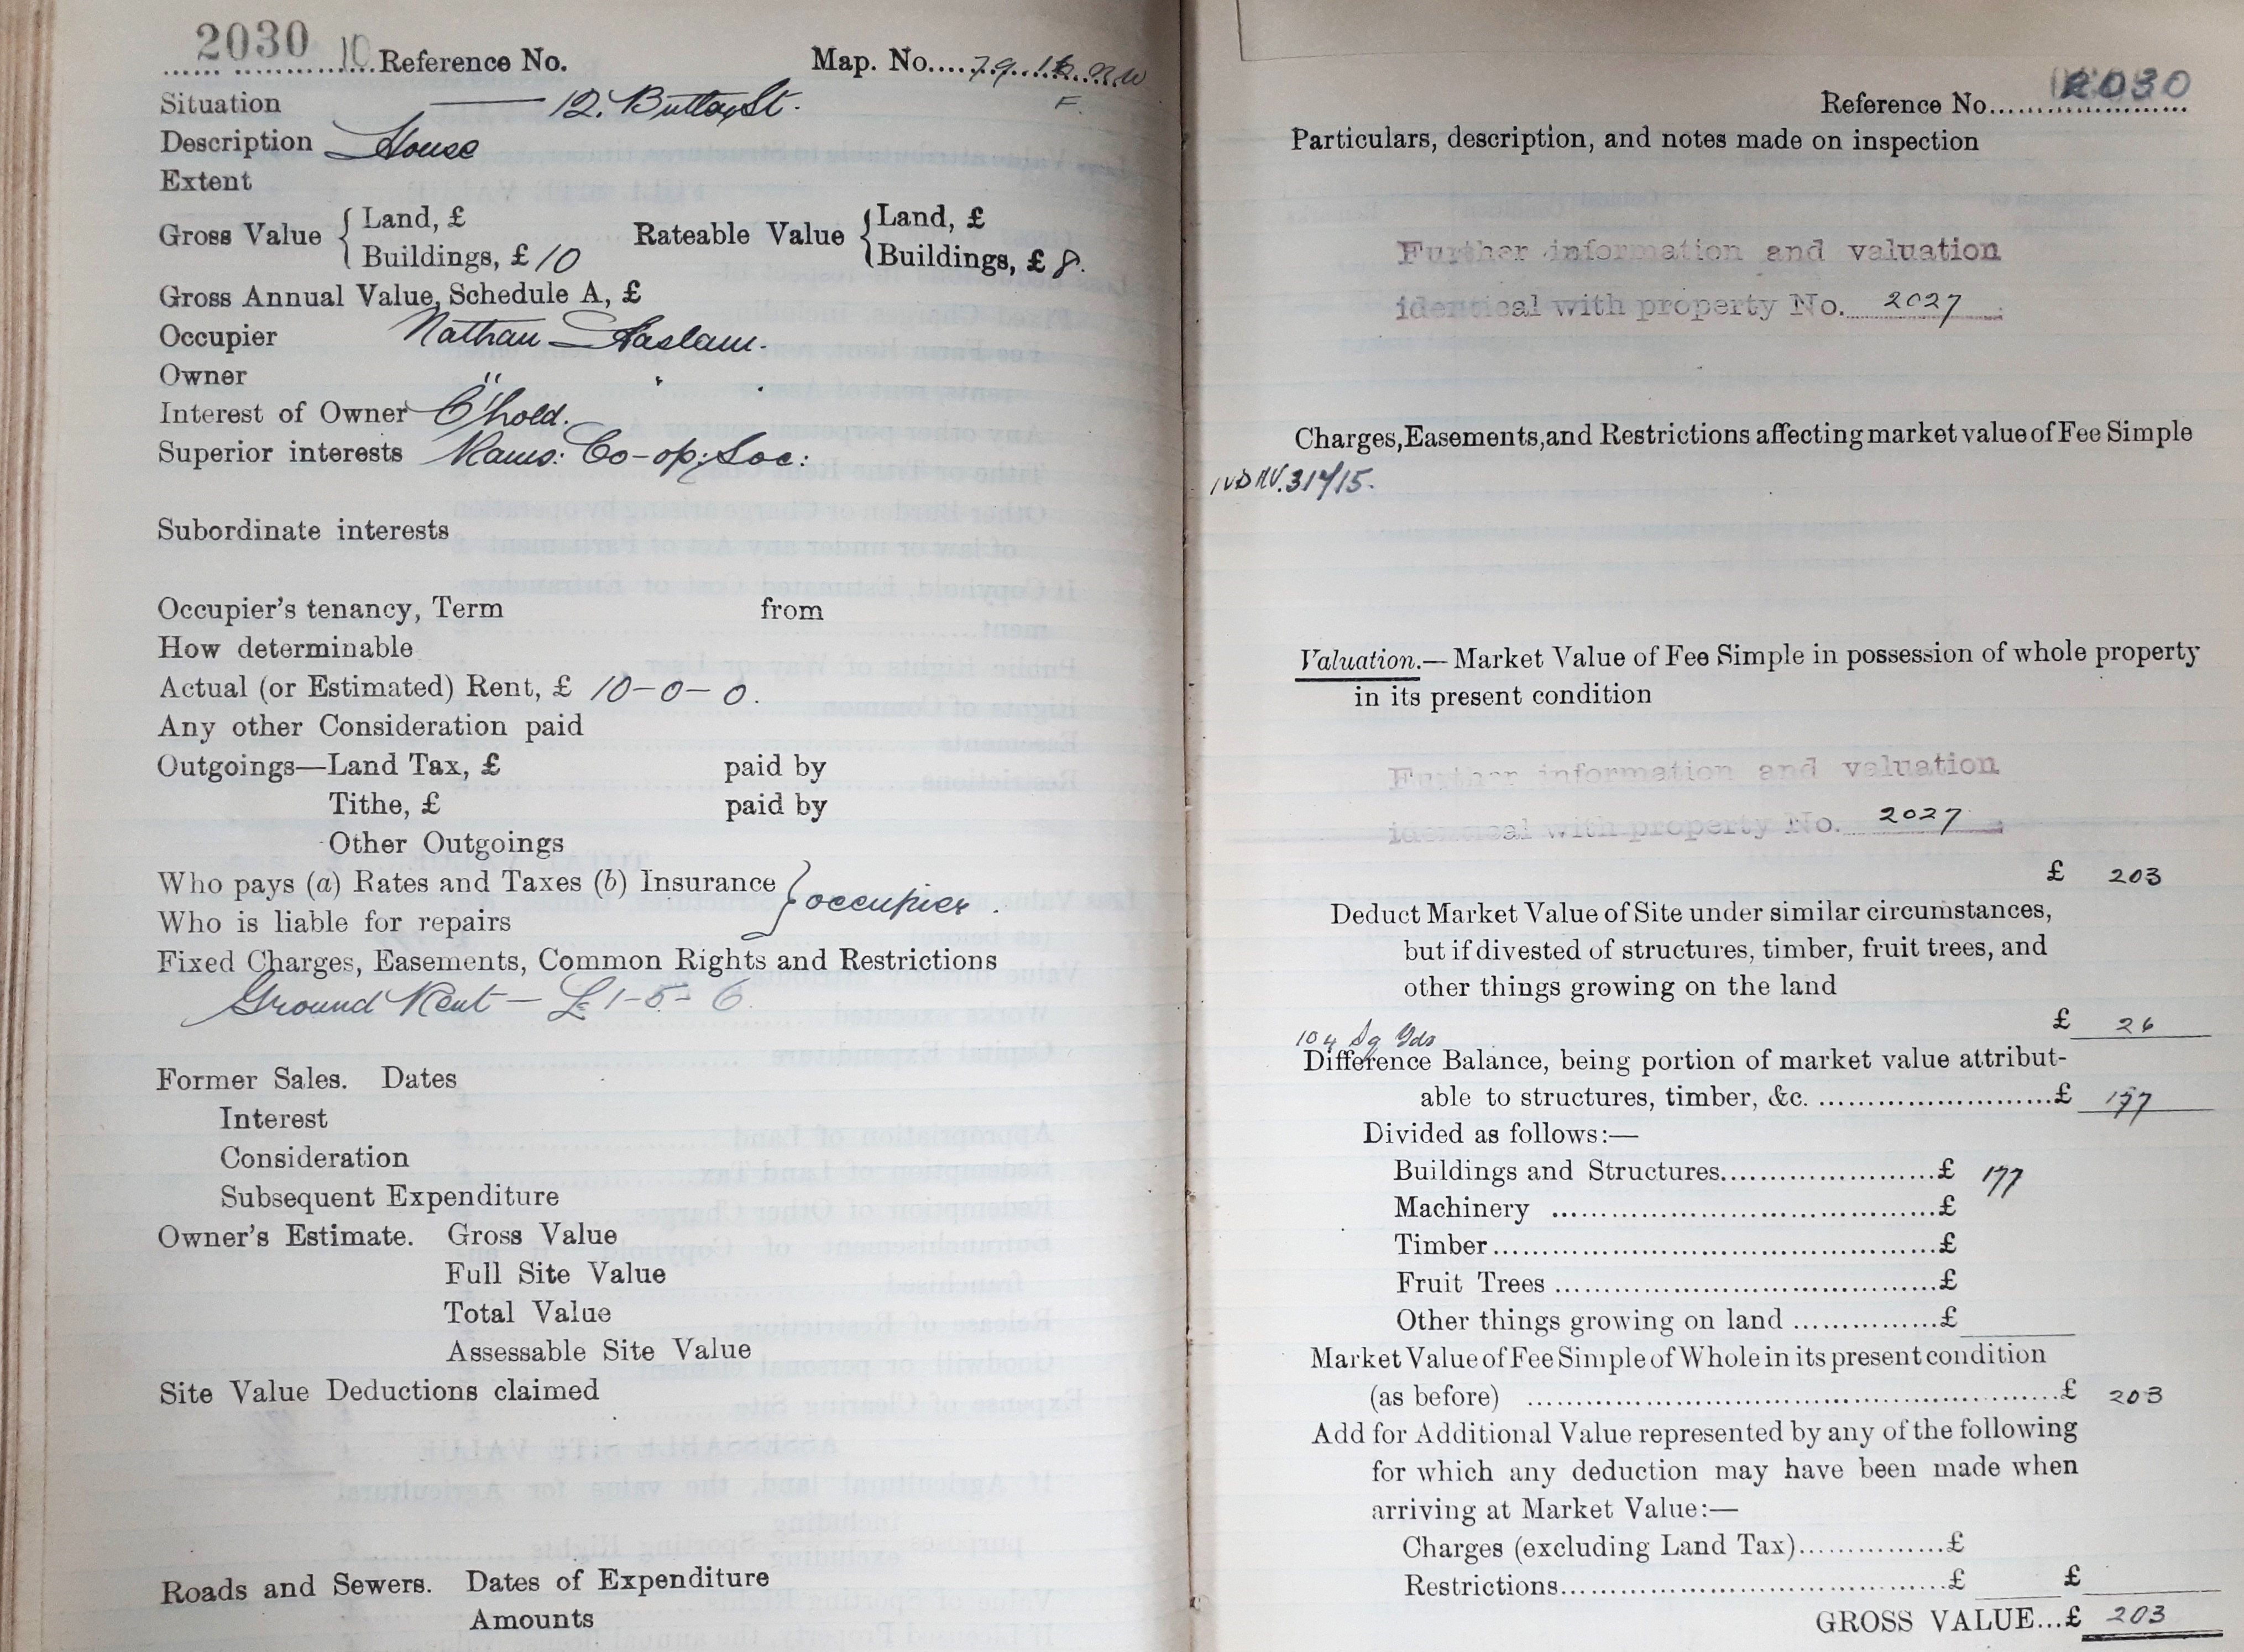 2030 10 Reference No. Map. No. 79.
Situation — 12. St.
Description House
Extent
Gross Value { Land, £ Rateable Value { Land, £
Buildings, £ 10 Buildings, £ 8.
Gross Annual Value, Schedule A, £
Occupier Nathan Haslam.
Owner " ' .
Interest of Owner C'hold.
Superior interests Rams: Co-op: Soc:
Subordinate interests
Occupier's tenancy, Term from
How determinable
Actual (or Estimated) Rent, £ 10-0-0.
Any other Consideration paid
Outgoings—Land Tax, £ paid by
Tithe, £ paid by
Other Outgoings
Who pays (a) Rates and Taxes (b) Insurance } occupier.
Who is liable for repairs
Fixed Charges, Easements, Common Rights and Restrictions
Ground Rent — £1-5-6
Former Sales. Dates
Interest
Consideration
Subsequent Expenditure
Owner's Estimate. Gross Value
Full Site Value
Total Value
Assessable Site Value
Site Value Deductions claimed
Roads and Sewers. Dates of Expenditure
Amounts
Reference No. 2030
Particulars, description, and notes made on inspection
Further information and valuation
identical with property No. 2027
Charges, Easements, and Restrictions affecting market value of Fee Simple
Valuation.— Market Value of Fee Simple in possession of whole property
in its present condition
Further information and valuation
identical with property No. 2027
£ 203
Deduct Market Value of Site under similar circumstances,
but if divested of structures, timber, fruit trees, and
other things growing on the land
£ 26
104 Sq Yds
Difference Balance, being portion of market value attribut-
able to structures, timber, &c. £ 177
Divided as follows:—
Buildings and Structures £ 177
Machinery £
Timber £
Fruit Trees £
Other things growing on land £
Market Value of Fee Simple of Whole in its present condition
(as before) £ 203
Add for Additional Value represented by any of the following
for which any deduction may have been made when
arriving at Market Value:—
Charges (excluding Land Tax) £
Restrictions £ £
GROSS VALUE...£ 203